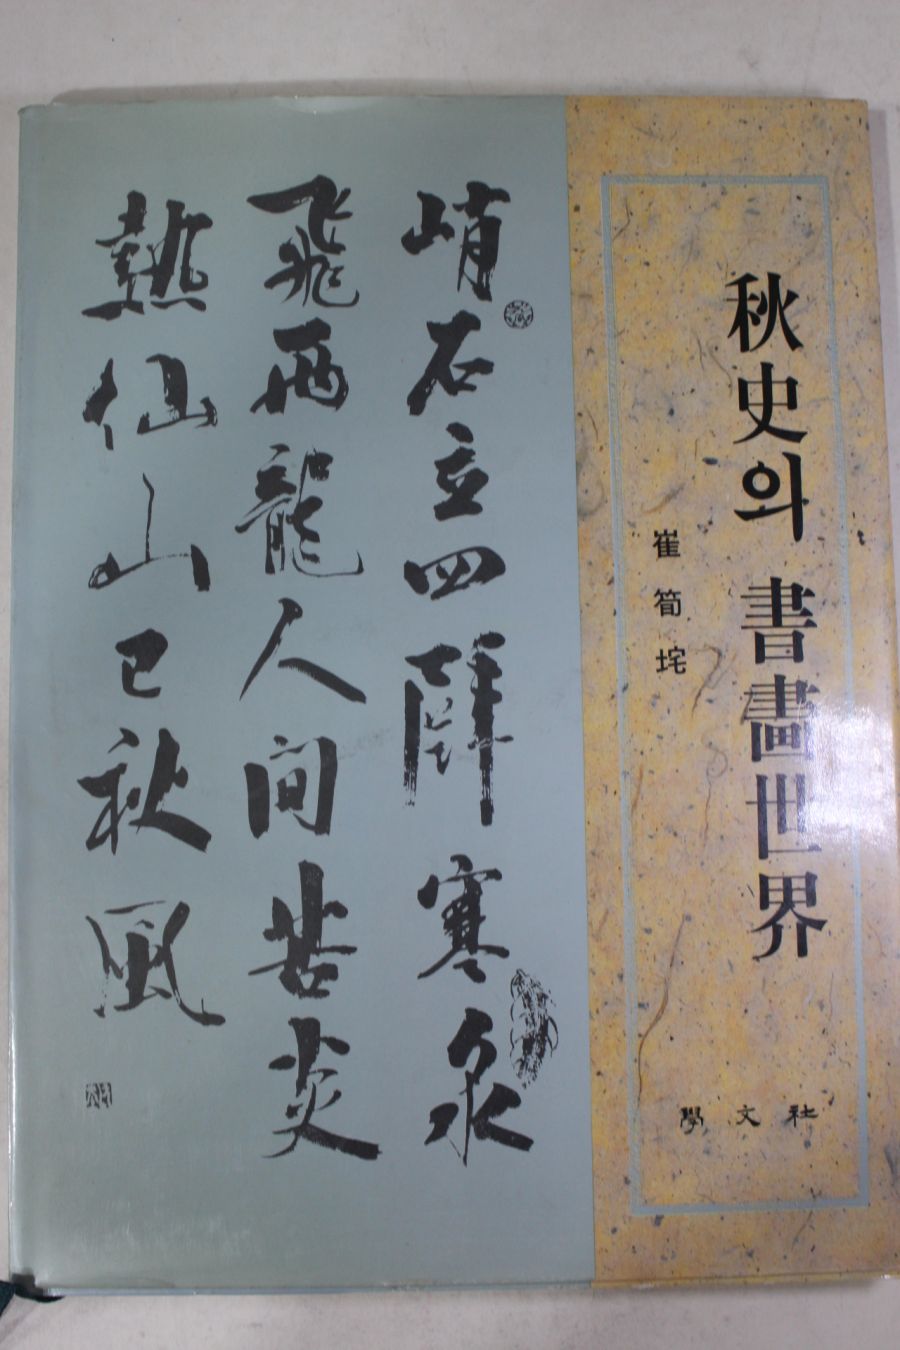 秋史의 書畵世界
崔筍垞
學文社
峭石立四壁寒泉
飛兩龍人間苦炎
熱仙山已秋風